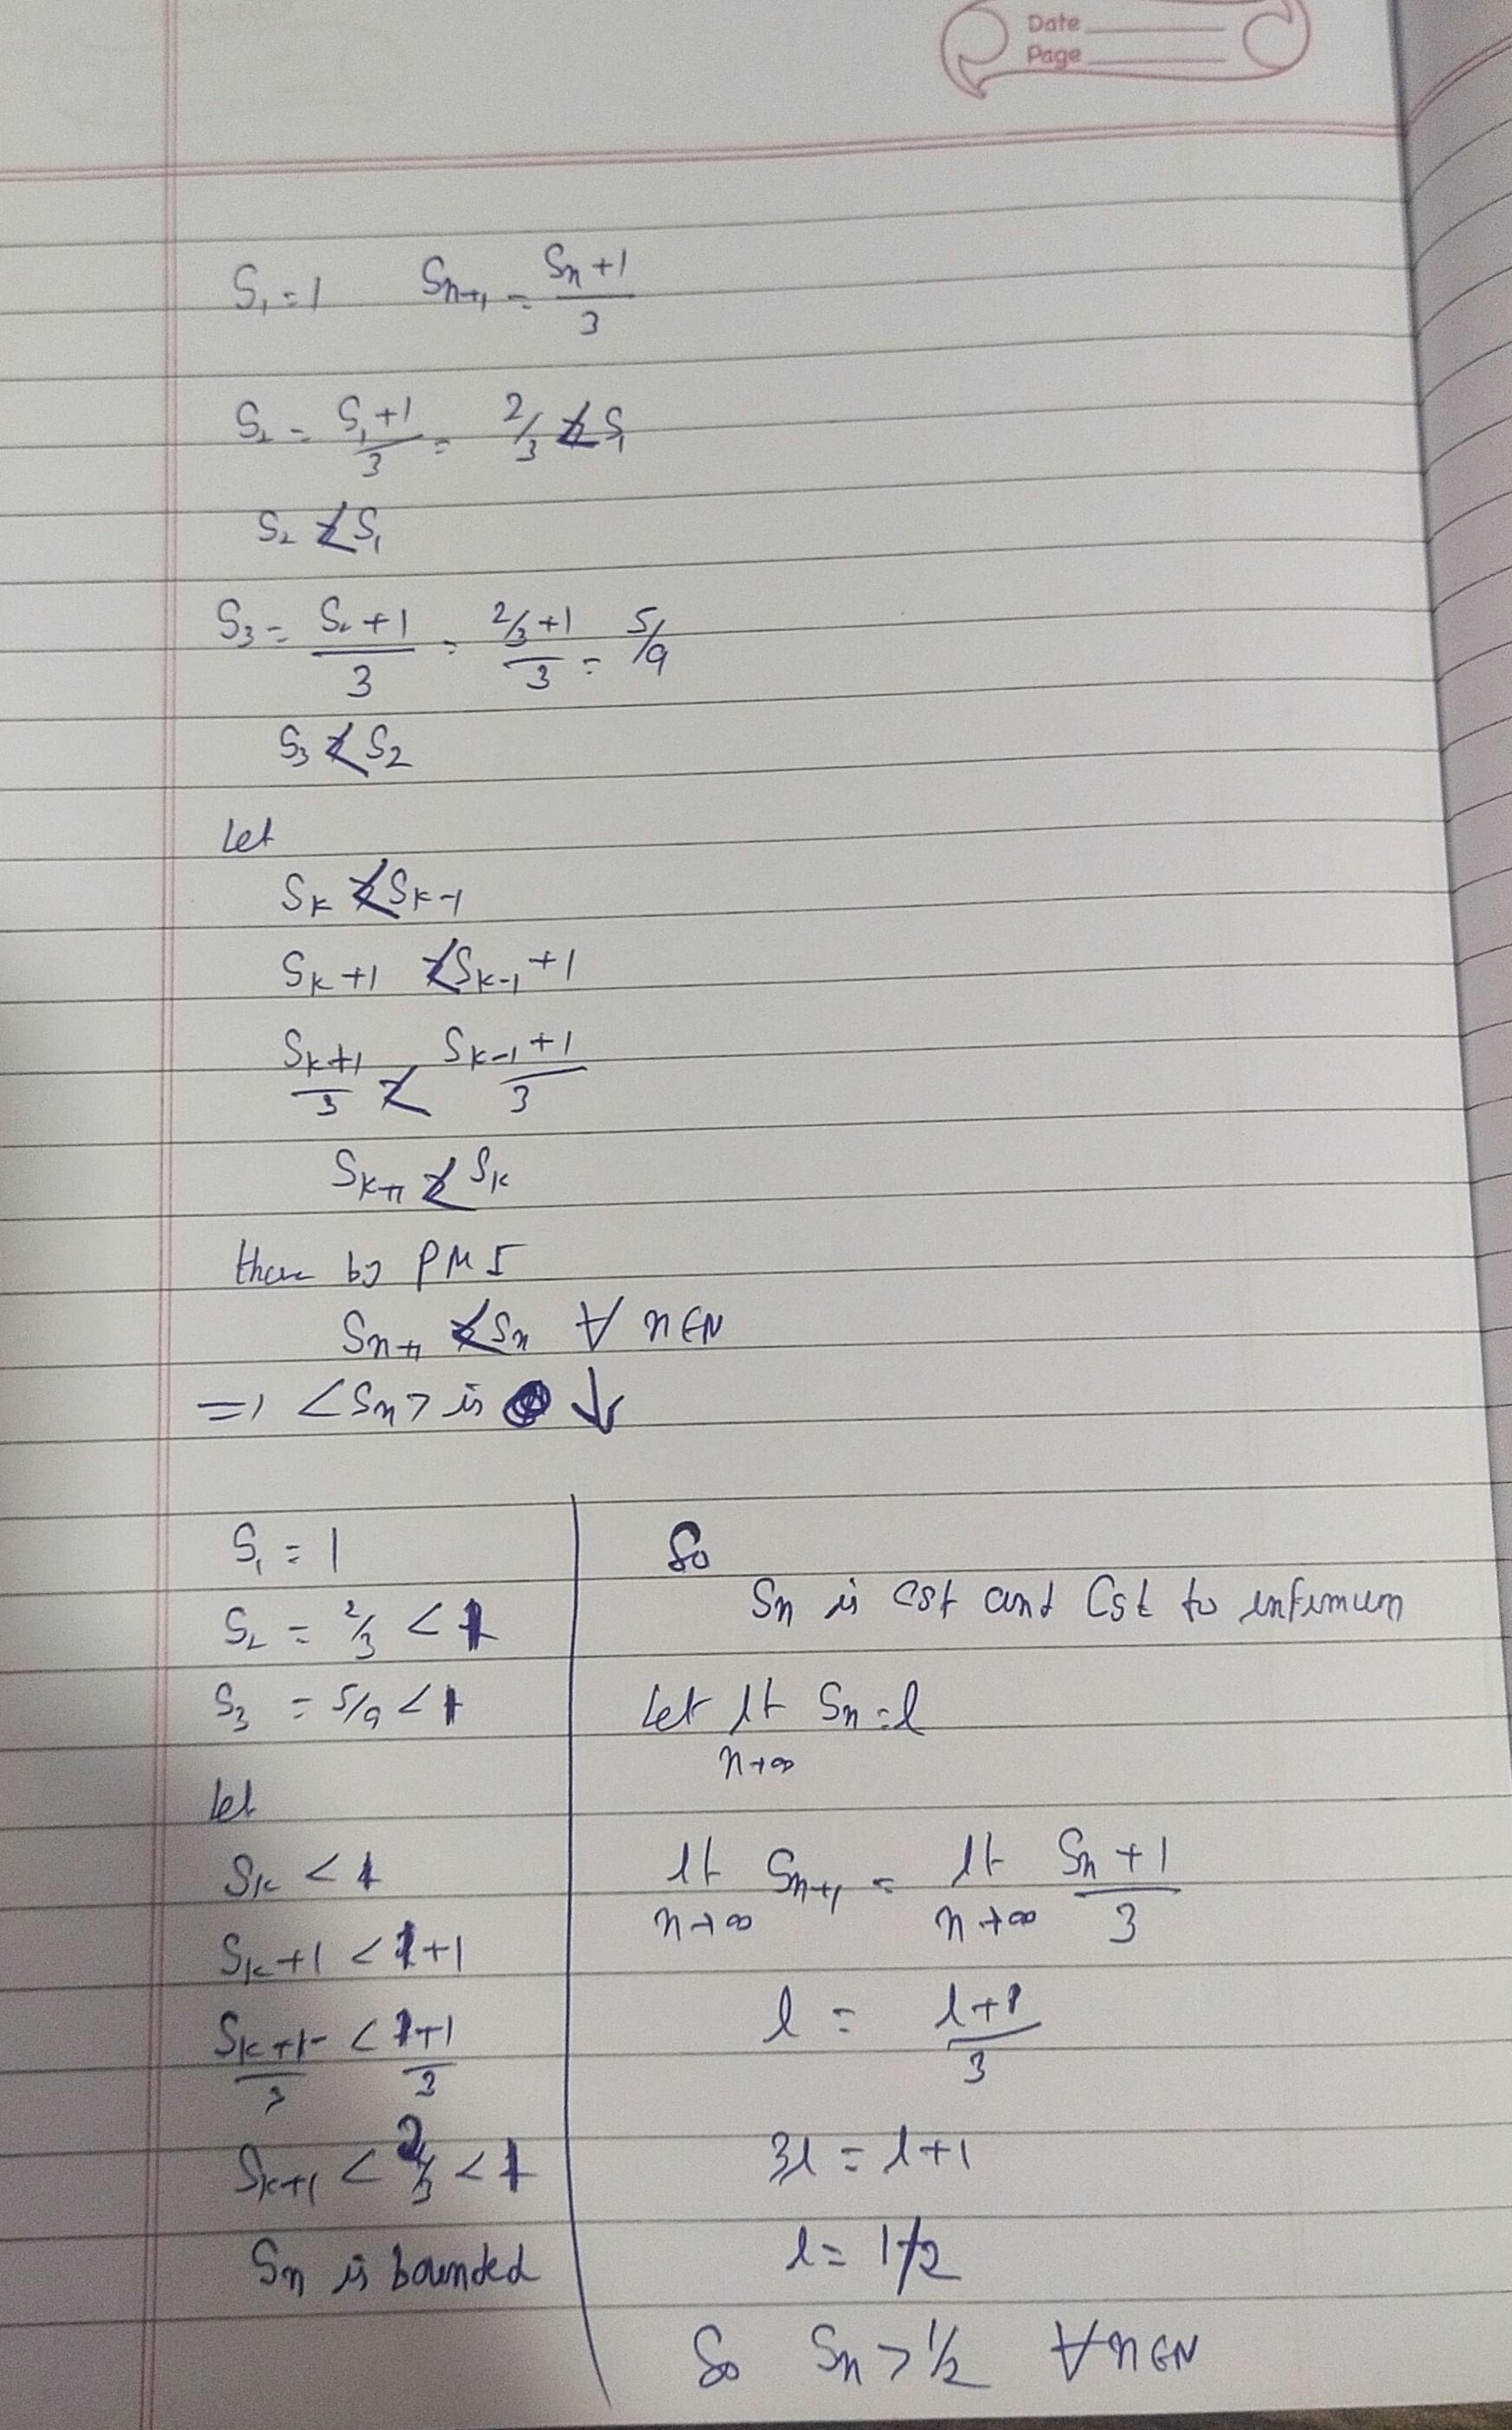 Date
Page
S₁ = 1 Sₙ₊₁ = (Sₙ + 1)/3
S₂ = (S₁ + 1)/3 = 2/3 < S₁
S₂ < S₁
S₃ = (S₂ + 1)/3 = (2/3 + 1)/3 = 5/9
S₃ < S₂
Let
Sₖ < Sₖ₋₁
Sₖ + 1 < Sₖ₋₁ + 1
(Sₖ + 1)/3 < (Sₖ₋₁ + 1)/3
Sₖ₊₁ < Sₖ
by PMI
Sₙ₊₁ < Sₙ ∀ n ∈ N
⇒ <Sₙ> is ↓
S₁ = 1
S₂ = 2/3 < 1
S₃ = 5/9 < 1
Let
Sₖ < 1
Sₖ + 1 < 1 + 1
(Sₖ + 1)/3 < (1 + 1)/3
Sₖ₊₁ < 2/3 < 1
Sₙ is bounded
So
Sₙ is cgt and cgt to infimum
Let lt n→∞ Sₙ = l
lt n→∞ Sₙ₊₁ = lt n→∞ (Sₙ + 1)/3
l = (l + 1)/3
3l = l + 1
l = 1/2
So Sₙ > 1/2 ∀ n ∈ N